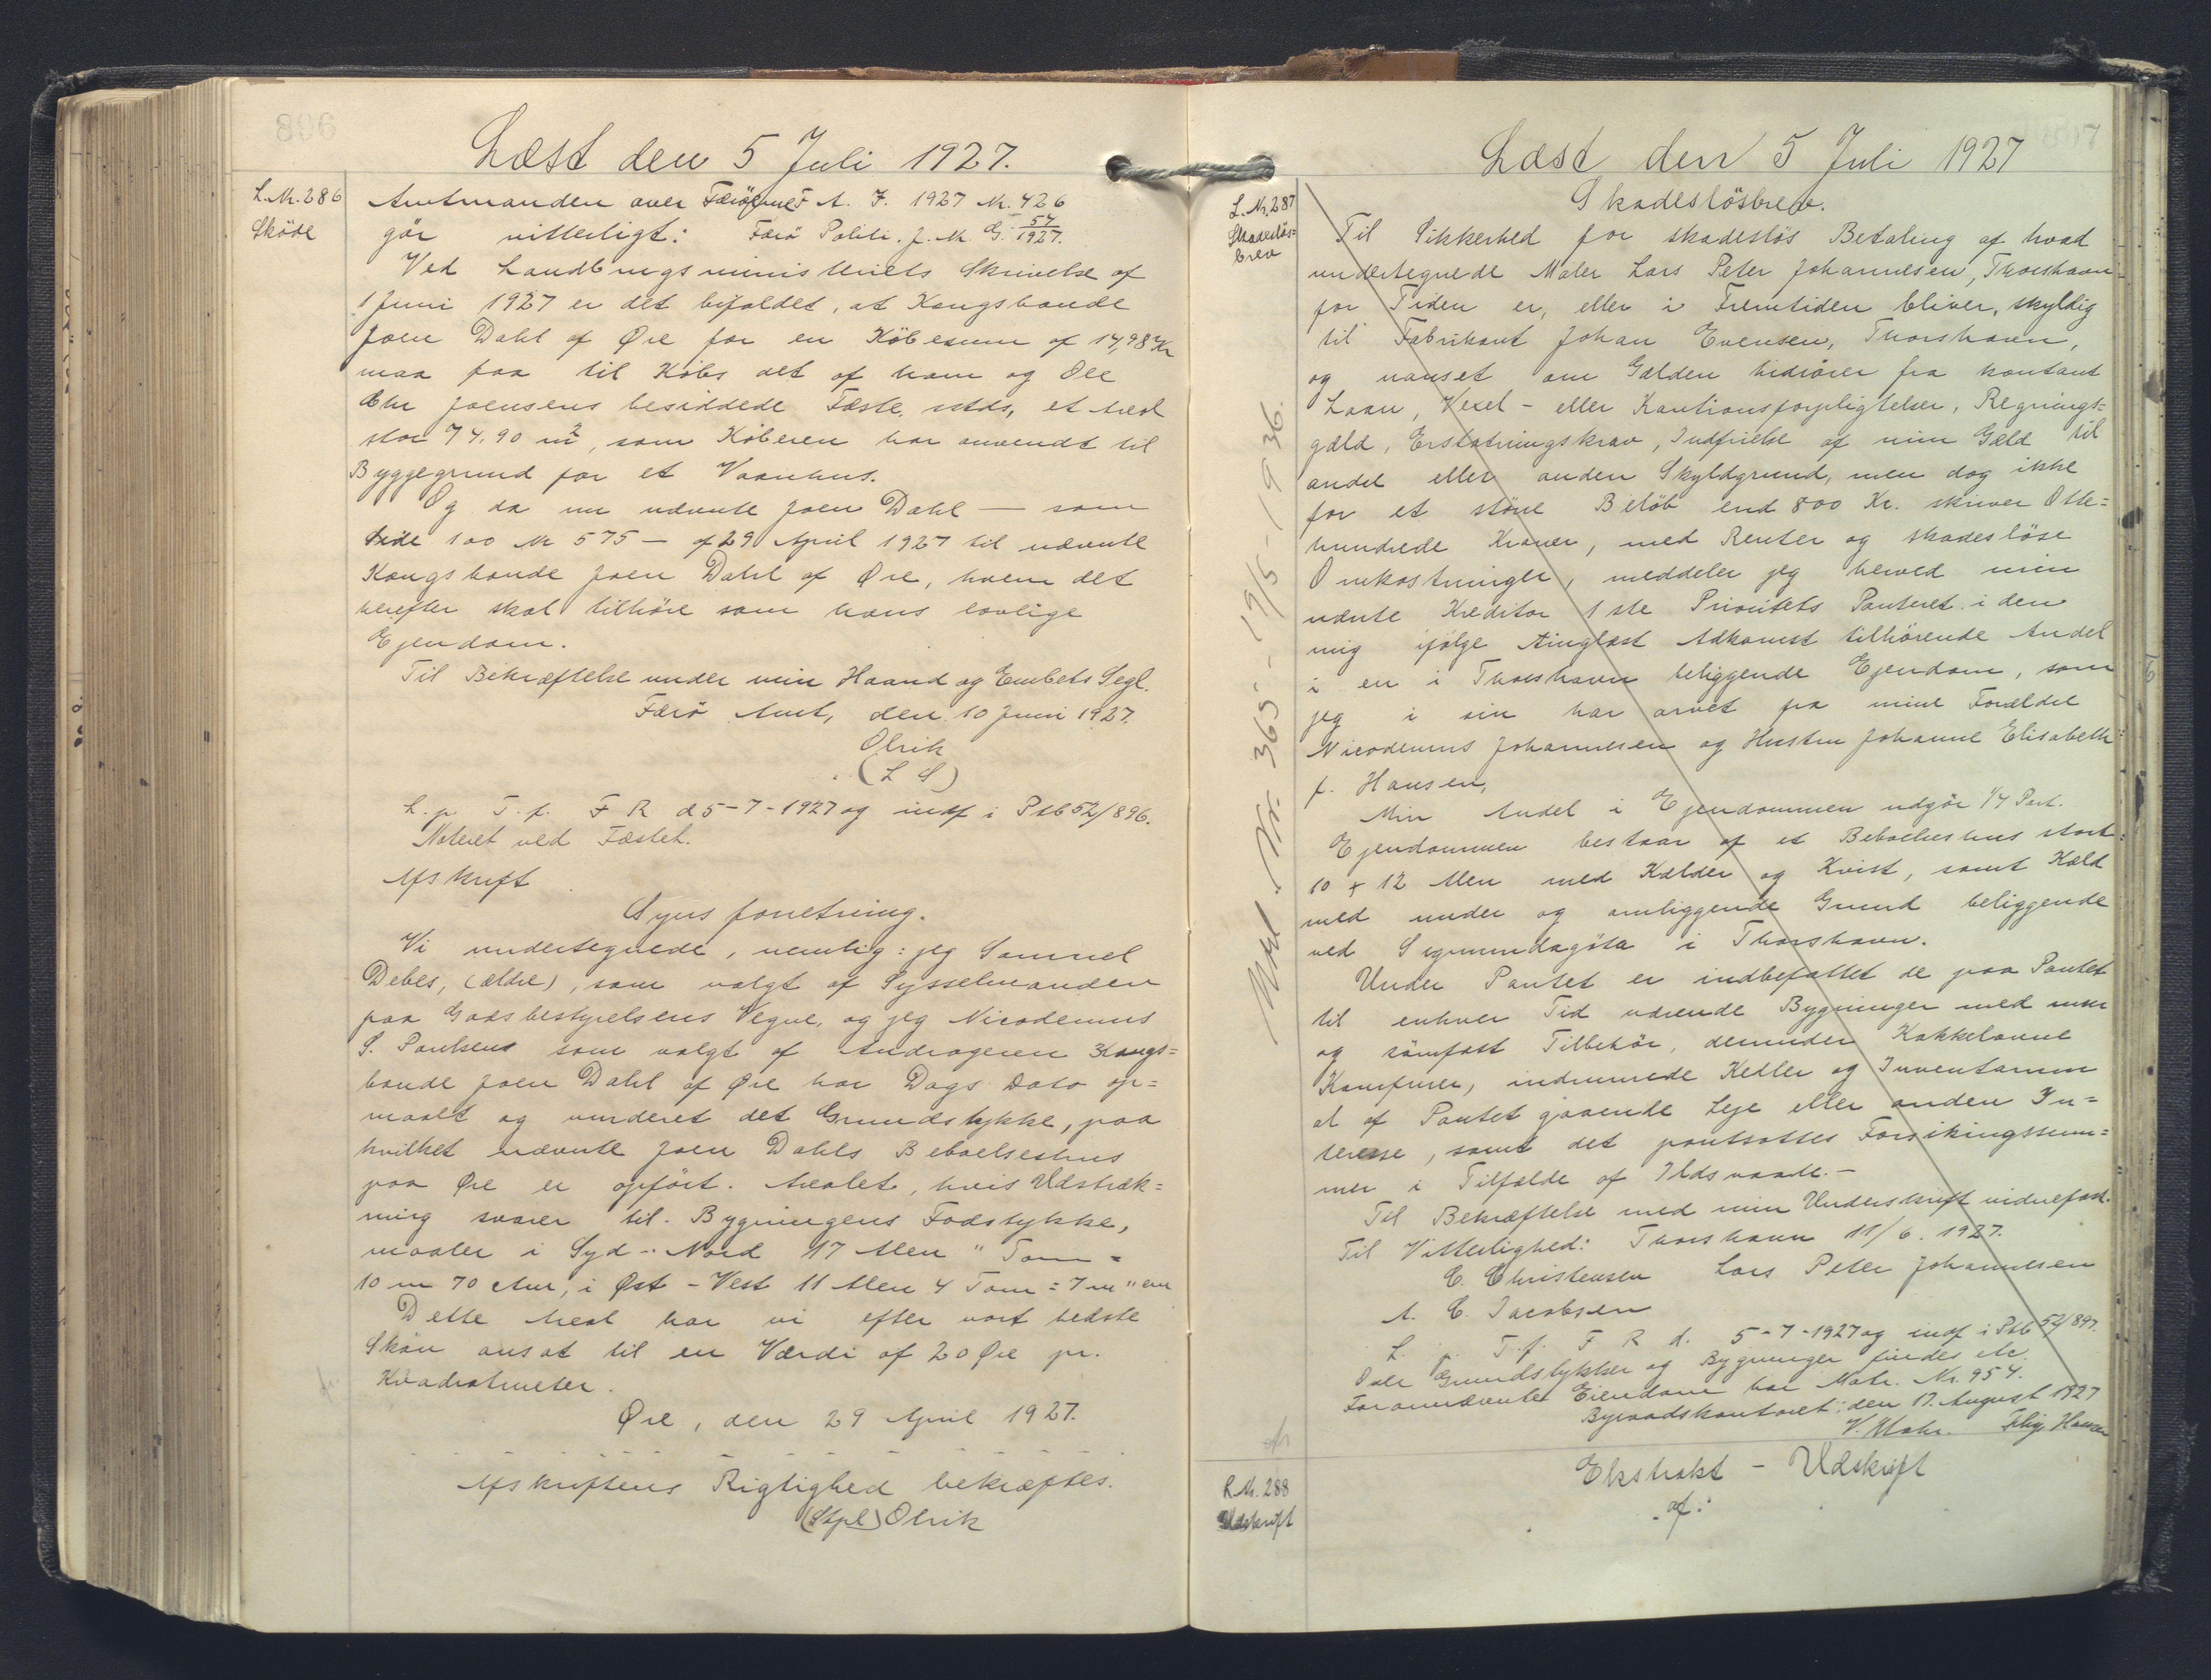 896
Læst den 5 Juli 1927.
L. Nr. 286
Sköde
Amtmanden over Færöerne F A. J. 1927 Nr. 426
gör vitterligt: Færö Politi. J. Nr. G. 54/1927.
Ved Landbrugsministeriets Skrivelse af
1 Juni 1927 er det bifaldet, at Kongsbonde
Joen Dahl af Øre for en Köbesum af 14,98 Kr
maa faa til Köbs det af ham og Ole
Chr Joensens besiddede Fæste sstds, et Areal
stor 74.90 m2, som Köberen har anvendt til
Byggegrund for et Vaanhus.
Og da nu nævnte Joen Dahl — som
Side 100 Nr 575 — af 29 April 1927 til nævnte
Kongsbonde Joen Dahl af Øre, hvem det
herefter skal tilhöre som hans lovlige
Ejendom.
Til Bekræftelse under min Haand og Embets Segl.
Færö Amt, den 10 Juni 1927.
Olrik
(L S)
L. p. T. f. F R d 5-7-1927 og indf i Ptb 52/896.
Noteret ved Fæstet.
Afskrift
Syns forretning.
Vi undertegnede, nemlig: jeg Samuel
Debes, (ældre), som valgt af Sysselmanden
paa Godsbestyrelsens Vegne, og jeg Nicodemus
S. Poulsens som valgt af Andrageren Kongs=
bonde Joen Dahl af Øre har Dags Dato op=
maalt og vurderet det Grundstykke, paa
hvilket nævnte Joen Dahls Beboelseshus
paa Øre er opfört. Arealet, hvis Udstræk=
ning svarer til Bygningens Fodstykke,
maaler i Syd-Nord 17 Alen " Tom =
10 m 70 ctm, i Øst - Vest 11 Alen 4 Tom = 7 m " cm
Dette Areal har vi efter vort bedste
Skön ansat til en Værdi af 20 Øre pr.
Kvadratmeter.
Øre, den 29 April 1927.
Afskriftens Rigtighed bekræftes.
(Stpl) Olrik
Læst den 5 Juli 1927
L. Nr. 287
Skadeslös=
brev
Skadeslösbrev.
Til Sikkerhed for skadeslös Betaling af hvad
undertegnede Maler Lars Peter Johannesen, Thorshavn
for Tiden er, eller i Fremtiden bliver, skyldig
til Fabrikant Johan Evensen, Thorshavn,
og uanset om Gælden hidrörer fra kontant
Laan, Vexel- eller Kautionsforpligtelser, Regnings=
gæld, Erstatningskrav, Indfrielse af min Gæld til
andre eller anden Skyldgrund, men dog ikke
for et störe Belöb end 800 Kr. skriver Otte=
hundrede Kroner, med Renter og skadeslöse
Omkostninger, meddeler jeg herved min
nævnte Kreditor 1ste Prioritets Panteret i den
mig ifölge tinglæst Adkomst tilhörende Andel
i en i Thorshavn beliggende Ejendom, som
jeg i sin har arvet fra mine Forældre
Nicodemus Johannesen og Hustru Johanne Elisabeth
f. Hansen,
Min Andel i Ejendommen udgör 1/7 Part.
Ejendommen bestaar af et Beboelseshus stort
10 x 12 Alen med Kælder og Kvist, samt Kæld
med under og omliggende Grund beliggende
ved Sigmundagöta i Thorshavn.
Under Pantet er indbefattet de paa Pantet
til enhver Tid værende Bygninger med mur
og sömfast Tilbehör, derunder Kakkelovne
Komfurer, indmurede Kedler og Inventarium
al af Pantet gaaende Leje eller anden In=
teresse, samt det pantsattes Forsikringssum=
mer i Tilfælde af Ildsvaade.-
Til Bekræftelse med min Underskrift vidnefast.
Til Vitterlighed: Thorshavn 11/6. 1927.
C. Christensen Lars Peter Johannesen
A. C. Jacobsen
L. p. T. f. F R d. 5-7-1927 og indf i Ptb 52/897.
Over Grundstykker og Bygninger findes etc.
Forannævnte Eiendom har Matr. Nr. 954.
Byraadskontoret: den 17. August 1927
V. Mohr. Hansen
Nr. 365 - 19/5 - 1936.
R. Nr. 288
Udskrift
Ekstrakt - Udskrift
af: